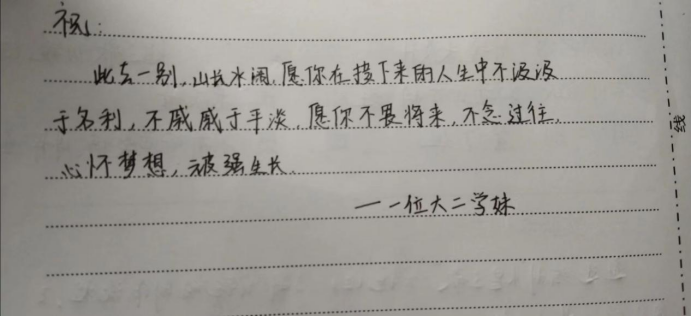 祝:
此去一别,山长水阔,愿你在接下来的人生中不汲汲
于名利,不戚戚于平淡,愿你不畏将来,不念过往,
心怀梦想,被强生长。
——一位大二学妹
线